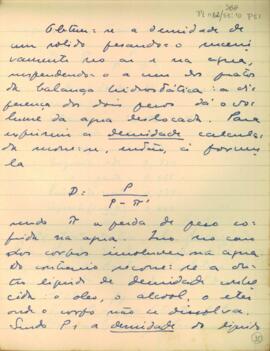 Obtem-se a densidade de
um solido pesando-o
vamente no ar e na agua,
suspendendo-o a um dos pratos
da balança hidrostática: a di-
ferença dos dois pesos dá o vo-
lume da agua deslocada. Para
exprimir a densidade calcula-
da então, a formu-
la
D = P / P - P'
sendo a perda de peso
na agua. No caso
dos corpos na agua
do contrario recorre-se a ou-
tro liquido de densidade conhe-
cida: o oleo, o alcool, o eter
onde o corpo não se dissolva.
Sendo P₁ a densidade do liquido